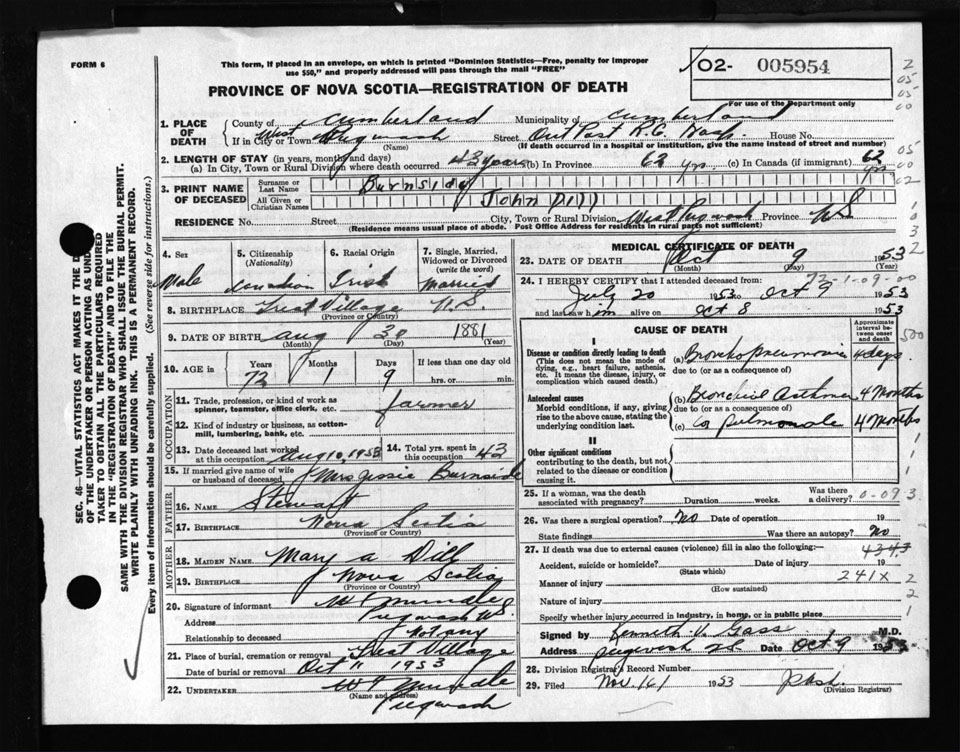 FORM 6
This form, if placed in an envelope, on which is printed "Dominion Statistics—Free, penalty for improper
use $50," and properly addressed will pass through the mail "FREE"
PROVINCE OF NOVA SCOTIA—REGISTRATION OF DEATH
O2- 005954
For use of the Department only
1. PLACE OF DEATH County of Cumberland Municipality of Cumberland
If in City or Town West Pugwash (Name) Street Out Post R.C. Hosp. House No.
(If death occurred in a hospital or institution, give the name instead of street and number)
2. LENGTH OF STAY (in years, months and days)
(a) In City, Town or Rural Division where death occurred 43 years (b) In Province 62 yrs. (c) In Canada (if immigrant) 62 yrs
3. PRINT NAME OF DECEASED Surname or Last Name Burnside
All Given or Christian Names John Dill
RESIDENCE No. Street City, Town or Rural Division West Pugwash Province NS
(Residence means usual place of abode. Post Office Address for residents in rural parts not sufficient)
4. Sex Male
5. Citizenship (Nationality) Canadian
6. Racial Origin Irish
7. Single, Married, Widowed or Divorced (write the word) Married
8. BIRTHPLACE Great Village N.S.
(Province or Country)
9. DATE OF BIRTH Aug 30 1881
(Month) (Day) (Year)
10. AGE in Years 72 Months 1 Days 9 If less than one day old
hrs. or min.
OCCUPATION
11. Trade, profession, or kind of work as spinner, teamster, office clerk, etc. farmer
12. Kind of industry or business, as cotton-mill, lumbering, bank, etc.
13. Date deceased last worked at this occupation Aug 10, 1953
14. Total yrs. spent in this occupation 43
15. If married give name of wife or husband of deceased Mrs Jessie Burnside
FATHER
16. NAME Stewart
17. BIRTHPLACE Nova Scotia
(Province or Country)
MOTHER
18. MAIDEN NAME Mary A Dill
19. BIRTHPLACE Nova Scotia
(Province or Country)
20. Signature of informant
Address Pugwash NS.
Relationship to deceased Not any
21. Place of burial, cremation or removal Great Village
Date of burial or removal Oct 11 1953
22. UNDERTAKER
(Name and address) Pugwash
MEDICAL CERTIFICATE OF DEATH
23. DATE OF DEATH Oct 9 1953
(Month) (Day) (Year)
24. I HEREBY CERTIFY that I attended deceased from: 72-1-09-00
July 20 1953 to Oct 9 1953
and last saw him alive on Oct 8 1953
CAUSE OF DEATH
Approximate interval between onset and death
I
Disease or condition directly leading to death (a) Bronchopneumonia 4 days.
(This does not mean the mode of dying, e.g., heart failure, asthenia, etc. It means the disease, injury, or complication which caused death.)
due to (or as a consequence of)
Antecedent causes (b) Bronchial Asthma 4 Months
Morbid conditions, if any, giving rise to the above cause, stating the underlying condition last.
due to (or as a consequence of)
(c) Cor pulmonale 4 Months
II
Other significant conditions
contributing to the death, but not related to the disease or condition causing it.
25. If a woman, was the death associated with pregnancy? Duration weeks. Was there a delivery?
26. Was there a surgical operation? No Date of operation 19
State findings Was there an autopsy? No
27. If death was due to external causes (violence) fill in also the following:—
Accident, suicide or homicide? Date of injury 19
(State which)
Manner of injury 241X
(How sustained)
Nature of injury
Specify whether injury occurred in industry, in home, or in public place
Signed by Kenneth V. Gass M.D.
Address Pugwash Date Oct 9 1953
28. Division Registrar's Record Number
29. Filed 1953
(Division Registrar)
SEC. 46—VITAL STATISTICS ACT MAKES IT THE D
OF THE UNDERTAKER OR PERSON ACTING AS UND
TAKER TO OBTAIN ALL THE PARTICULARS REQUIRED
IN THE "REGISTRATION OF DEATH" AND TO FILE THE
SAME WITH THE DIVISION REGISTRAR WHO SHALL ISSUE THE BURIAL PERMIT.
WRITE PLAINLY WITH UNFADING INK. THIS IS A PERMANENT RECORD.
Every item of information should be carefully supplied. (See reverse side for instructions.)